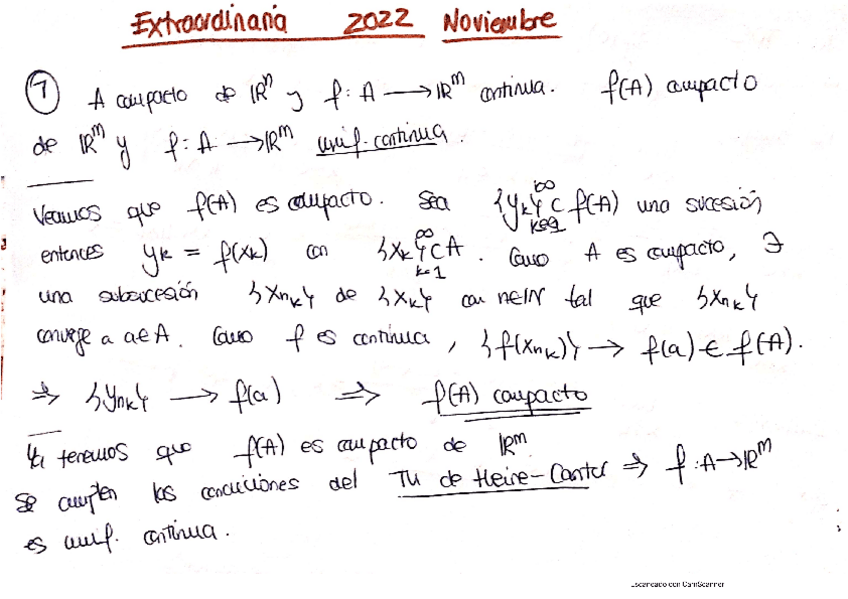 Extraordinaria 2022 Noviembre
1 A compacto de ℝⁿ y f: A → ℝᵐ continua. f(A) compacto
de ℝᵐ y f: A → ℝᵐ unif. continua.
Veamos que f(A) es compacto. Sea {yₖ}ₖ₌₁^∞ ⊂ f(A) una sucesión
entonces yₖ = f(xₖ) con {xₖ}ₖ₌₁^∞ ⊂ A. Como A es compacto, ∃
una subsucesión {xₙₖ} de {xₖ} con n∈ℕ tal que {xₙₖ}
converge a a∈A. Como f es continua, {f(xₙₖ)} → f(a) ∈ f(A).
⇒ {yₙₖ} → f(a) ⇒ f(A) compacto
Ya tenemos que f(A) es compacto de ℝᵐ
Se cumplen las condiciones del TH de Heine-Cantor ⇒ f: A → ℝᵐ
es unif. continua.
Escaneado con CamScanner